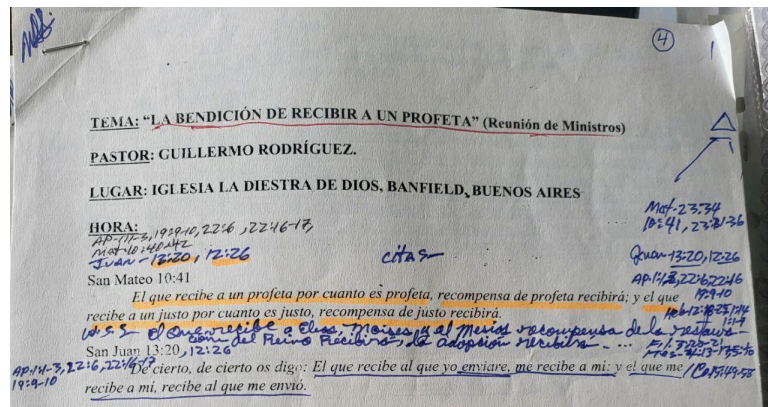 4
TEMA: “LA BENDICIÓN DE RECIBIR A UN PROFETA” (Reunión de Ministros)
PASTOR: GUILLERMO RODRÍGUEZ.
LUGAR: IGLESIA LA DIESTRA DE DIOS, BANFIELD, BUENOS AIRES
Mat-23:34
10:41, 23:31-36
HORA:
AP-1:1-3, 19:9-10, 22:6, 22:16-17,
Mat-10:40-42
JUAN - 13:20, 12:26
citas
Juan-13:20, 12:26
San Mateo 10:41
AP-1:1-3, 22:6, 22:16
19:9-10
El que recibe a un profeta por cuanto es profeta, recompensa de profeta recibirá; y el que
recibe a un justo por cuanto es justo, recompensa de justo recibirá.
W.S.S. El que recibe a Elias, Moises, y al Mesias recompensa de la restaura-
cion del Reino Recibira, la adopsion recibira ...
San Juan 13:20, 12:26
Fil. 3:20-21
AP-1:1-3, 22:6, 22:16-17
19:9-10
De cierto, de cierto os digo: El que recibe al que yo enviare, me recibe a mí; y el que me
recibe a mí, recibe al que me envió.
1Co 15:49-58